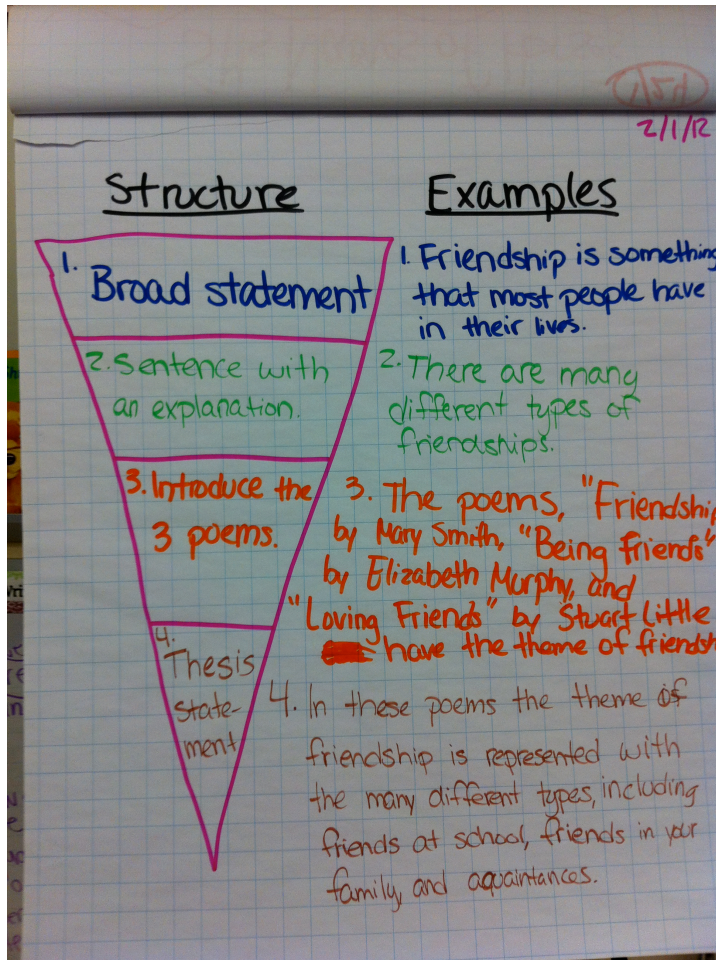 2/1/12
Structure
Examples
1. Broad statement
2. Sentence with
an explanation.
3. Introduce the
3 poems.
4.
Thesis
state-
ment
1. Friendship is something
that most people have
in their lives.
2. There are many
different types of
friendships.
3. The poems, "Friendship
by Mary Smith, "Being Friends"
by Elizabeth Murphy, and
"Loving Friends" by Stuart Little
have the theme of friendsh
4. In these poems the theme of
friendship is represented with
the many different types, including
friends at school, friends in your
family, and aquaintances.